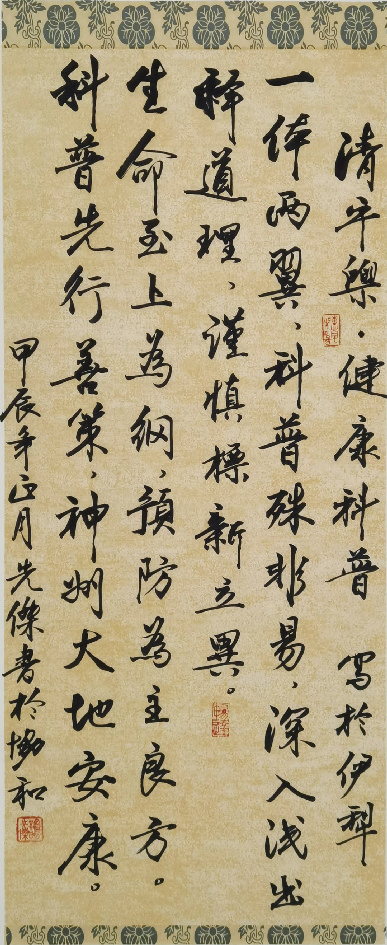 清平樂·健康科普 寫於伊犁
一体兩翼，科普殊非易，深入浅出
釋道理，謹慎標新立異。
生命至上為綱，預防為主良方。
科普先行善策，神州大地安康。
甲辰年正月先傑書於協和